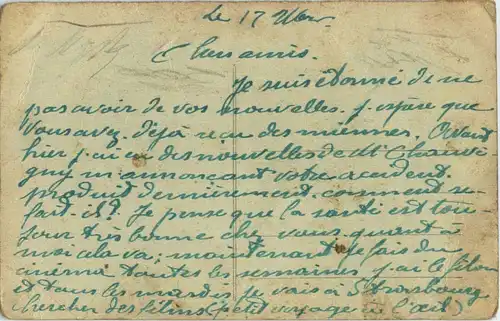 Le 17 9bre
Chers amis.
Je suis étonné de ne
pas avoir de vos nouvelles. j'espère que
vous avez déjà reçu des miennes. Avant
hier j'ai eu des nouvelles de Mr Chauvi
gny m'annonçant votre accident
produit dernièrement. comment se
fait-il? Je pense que la santé est tou
jours très bonne chez vous. quant à
moi cela va; maintenant je fais du
cinéma toutes les semaines j'ai le filon
et tous les mardis je vais à Strasbourg
chercher des films (petit voyage à l'œil)